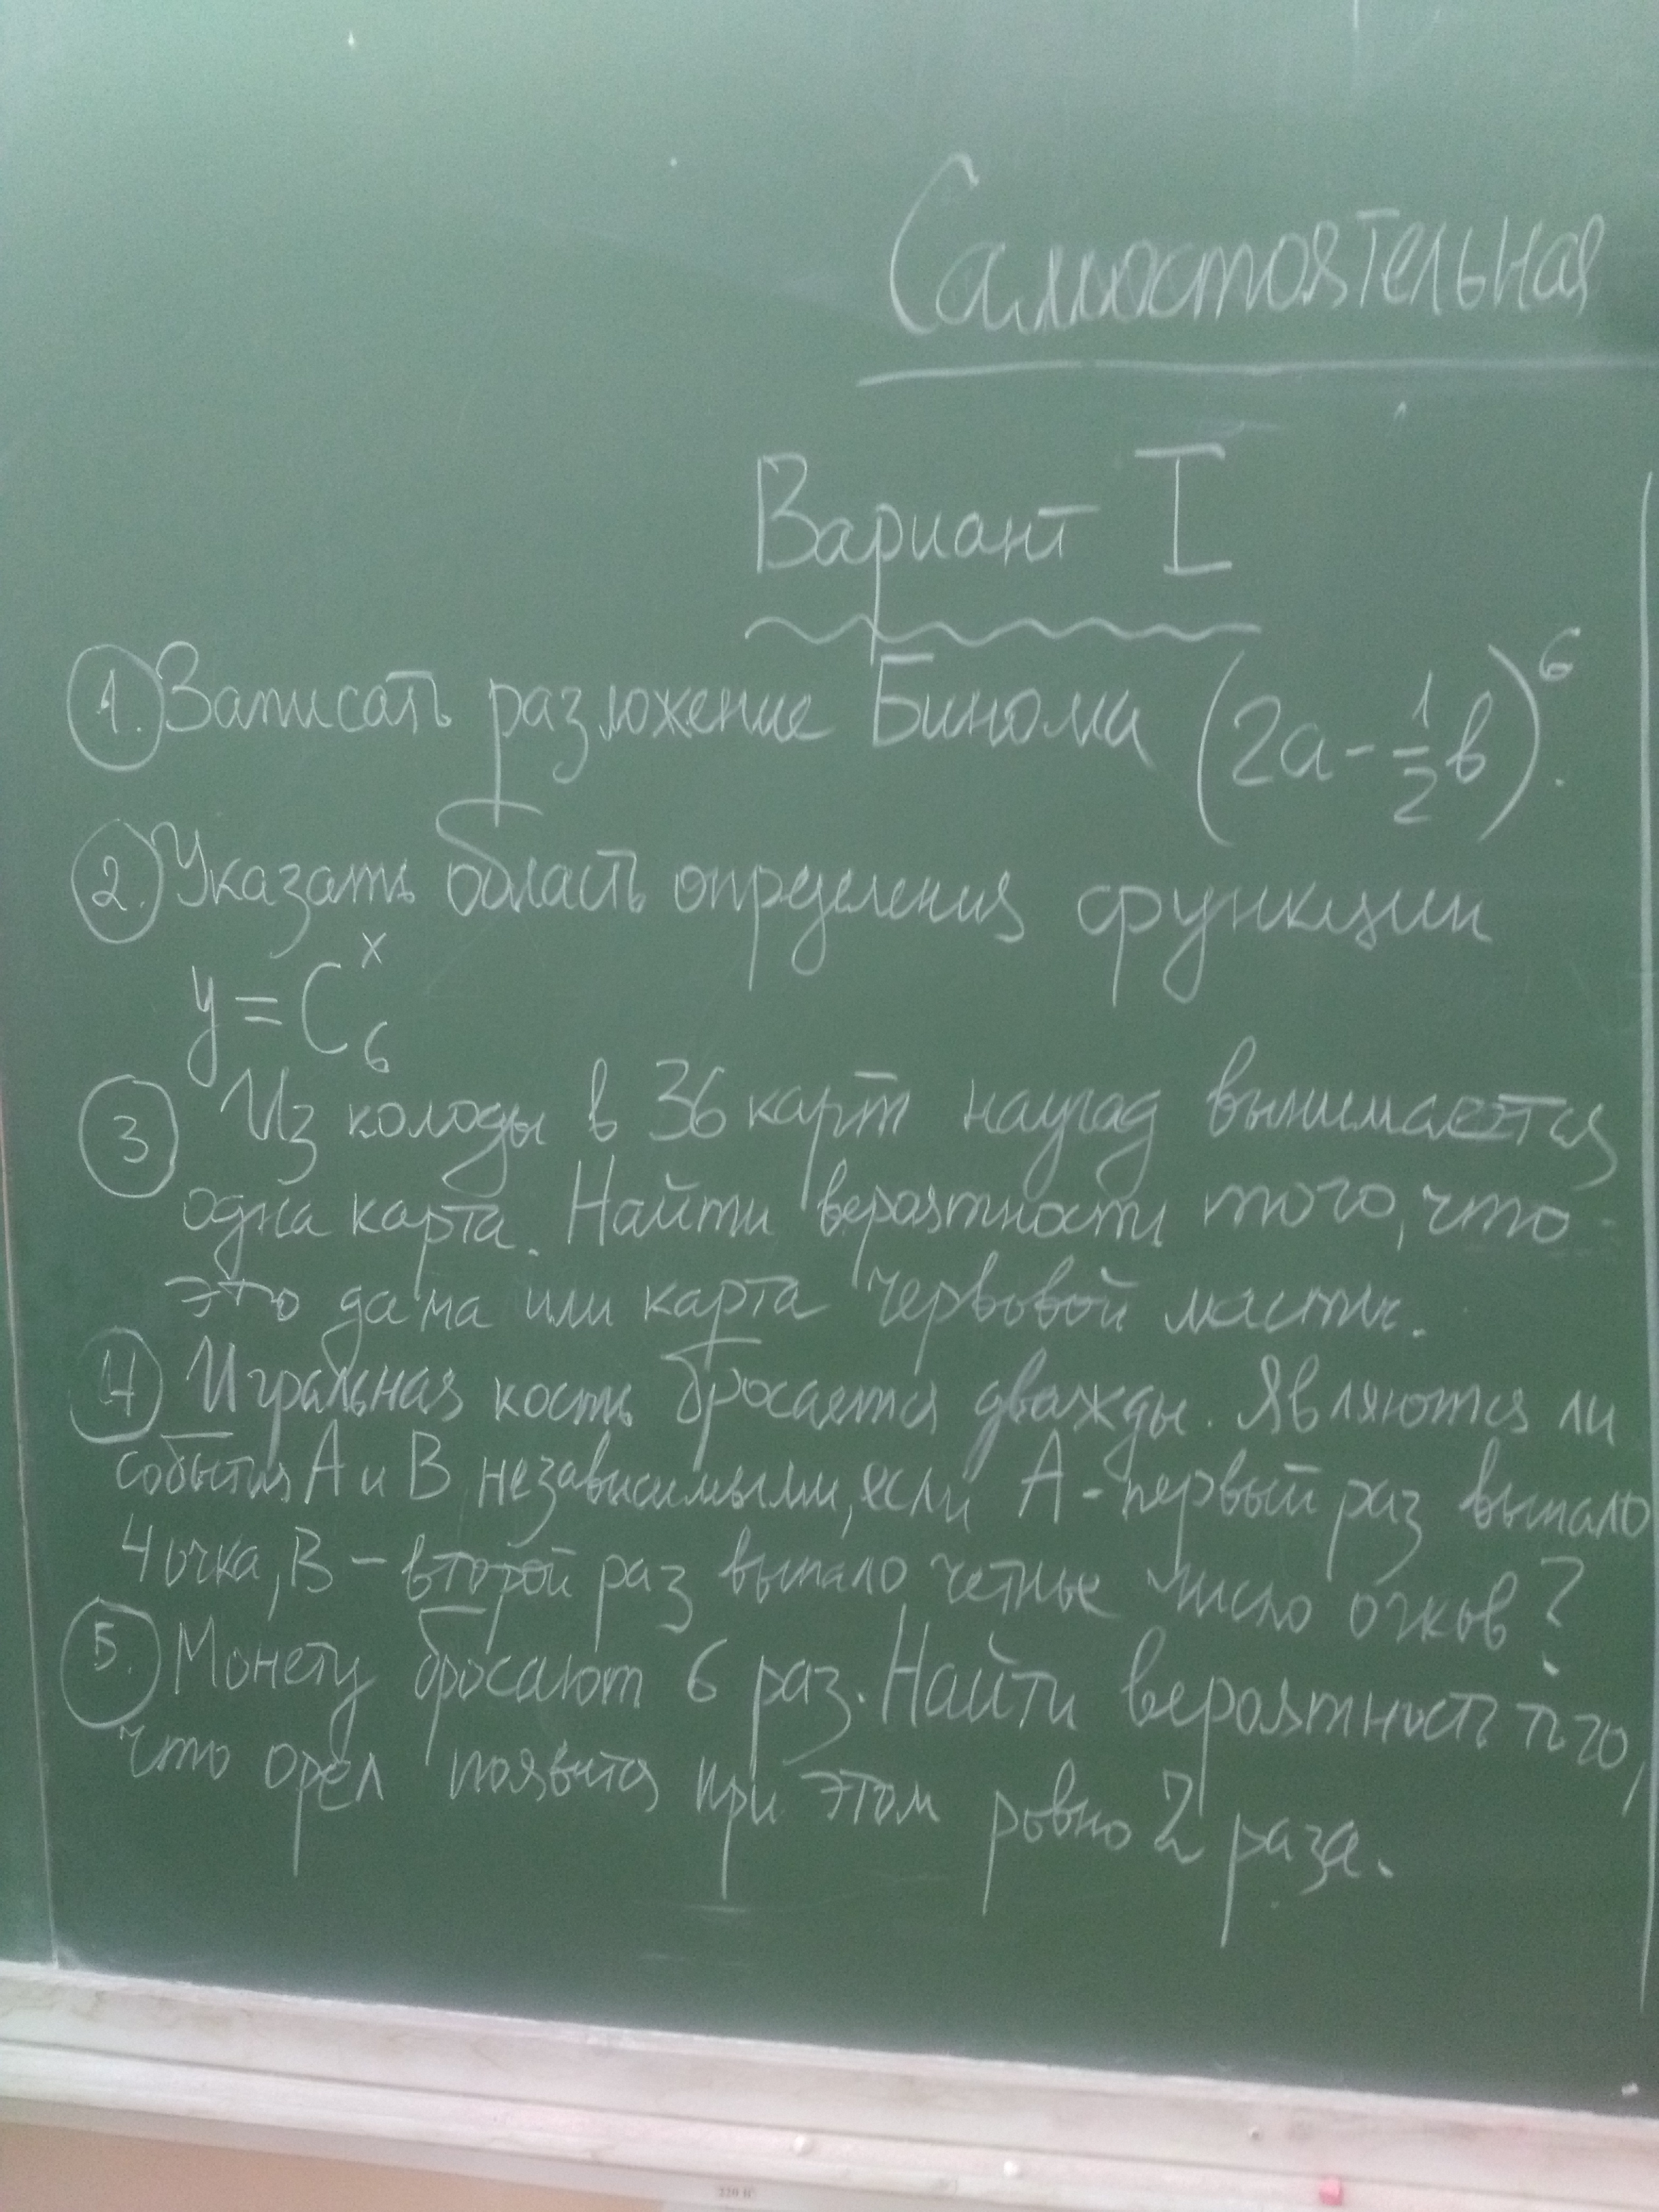 Самостоятельная
Вариант I
1. Записать разложение Бинома (2a - 1/2 b)^6.
2. Указать область определения функции
y = C_6^x
3 Из колоды в 36 карт наугад вынимается
одна карта. Найти вероятности того, что
это дама или карта червовой масти.
4 Игральная кость бросается дважды. Являются ли
события A и B независимыми, если A - первый раз выпало
4 очка, B - второй раз выпало четные число очков?
5. Монету бросают 6 раз. Найти вероятность того,
что орёл появится при этом ровно 2 раза.